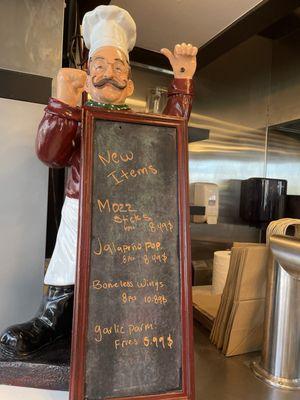 New
Items
Mozz
Sticks
8.49$
Jalapeño pop.
8PC 8.49$
Boneless wings
8PC 10.89$
garlic parm.
Fries 5.99$